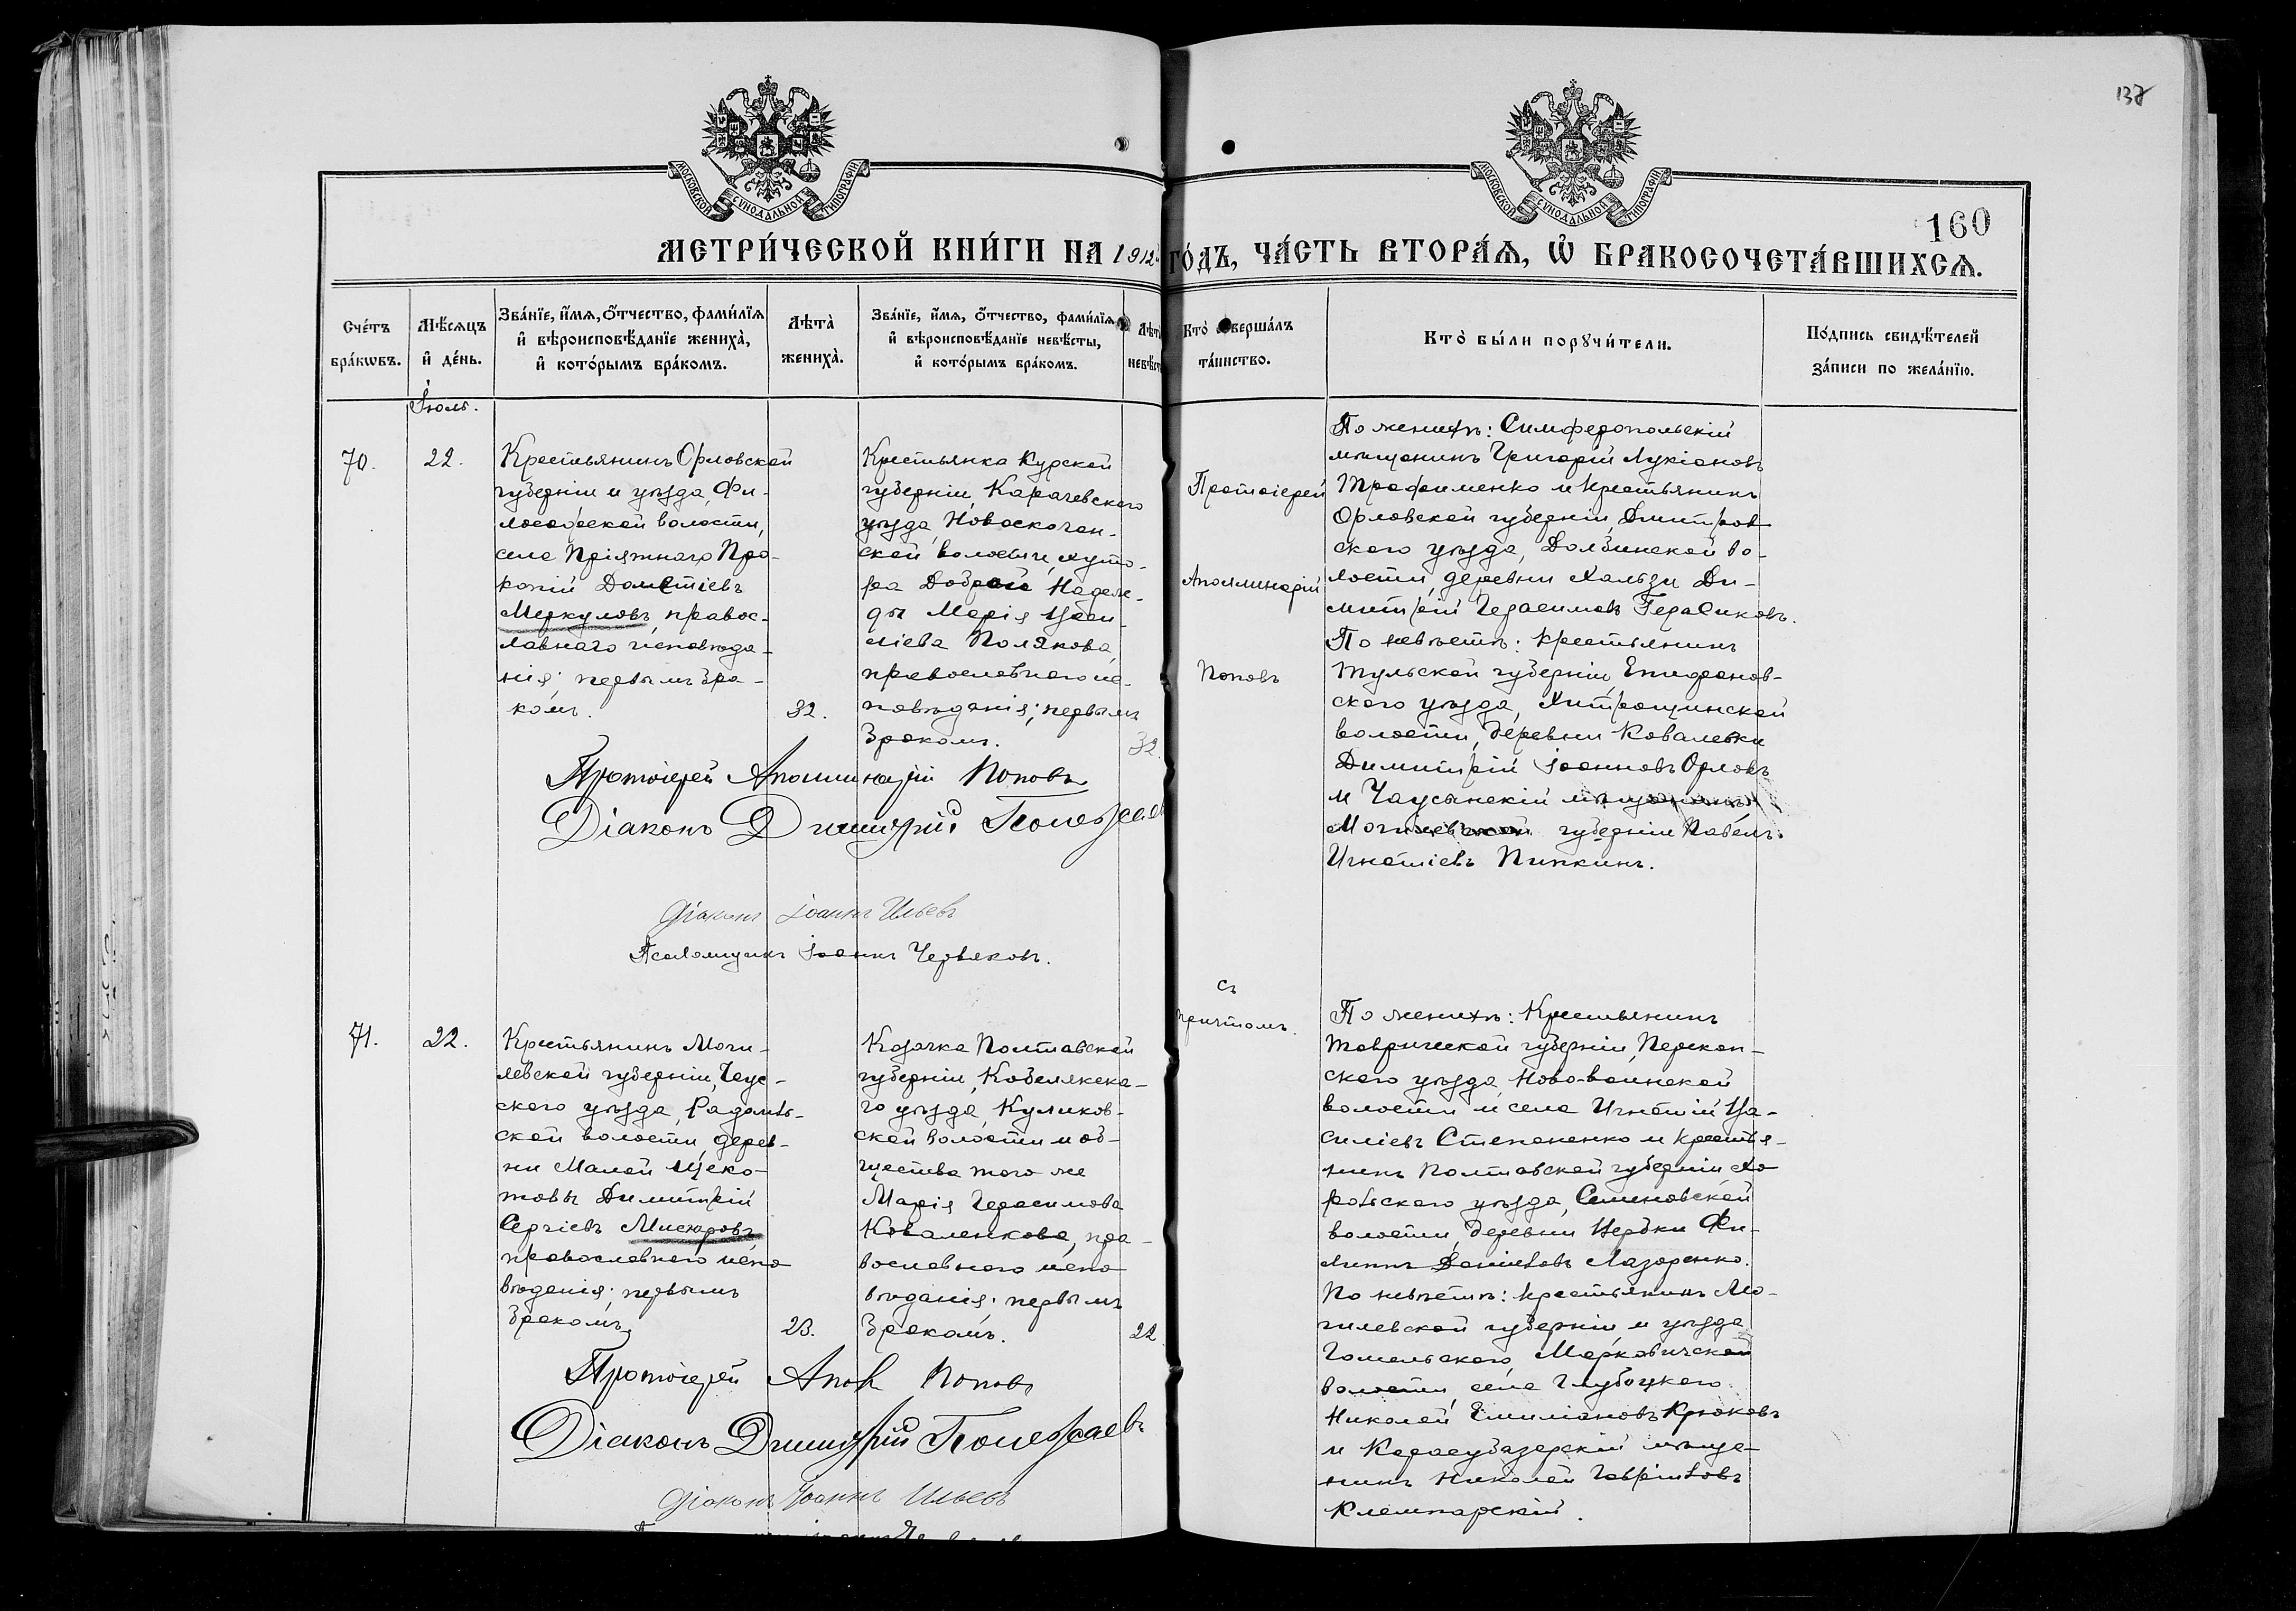 138
160
МОСКОВСКОЙ СѴНОДАЛЬНОЙ ТИПОГРАФІИ
МОСКОВСКОЙ СѴНОДАЛЬНОЙ ТИПОГРАФІИ
МЕТРИ́ЧЕСКОЙ КНИ́ГИ НА 1912 ГО́ДЪ, ЧА́СТЬ ВТОРА́Ѧ, Ѡ҆ БРАКОСОЧЕТА́ВШИХСѦ.
Сче́тъ бра́кѡвъ.
Мѣ́сяцъ и҆ де́нь.
Зва́нїе, и҆́мѧ, ѻ҆́тчество, фами́лїѧ и҆ вѣроисповѣ́данїе жениха̀, и҆ кото́рымъ бра́комъ.
Лѣта̀ жениха̀.
Зва́нїе, и҆́мѧ, ѻ҆́тчество, фами́лїѧ и҆ вѣроисповѣ́данїе невѣ́сты, и҆ кото́рымъ бра́комъ.
Лѣта̀ невѣ́ст
Кто̀ соверша́лъ та́инство.
Кто̀ бы́ли порꙋчи́тели.
По́дпись свидѣ́телей за́писи по жела́нїю.
Іюль.
70.
22.
Крестьянинъ Орловской
губерніи и уѣзда, Фи-
лософской волости,
села Пріятнаго Про-
копій Дометіевъ
Меркуловъ, правос-
лавнаго исповѣда-
нія; первымъ бра-
комъ.
32.
Крестьянка Курской
губерніи, Карачевского
уѣзда, Новоскочан-
ской волости, хуто-
ра Доброй Надеж-
ды Марія Васи-
ліева Полякова,
православнаго ис-
повѣданія; первымъ
бракомъ.
32
Протоіерей
Аполлинарій
Поповъ
По женихѣ: Симферопольскій
мѣщанинъ Григорій Лукіановъ
Трофименко и крестьянинъ
Орловской губерніи, Дмитров
ского уѣзда, Долбинской во-
лости, деревни Хальзи Ди-
митрій Герасимовъ Герасиковъ.
По невѣстѣ: крестьянинъ
Тульской губерніи Епифанов-
ского уѣзда, Хитровщинской
волости, деревни Ковалевки
Димитрій Іоанновъ Орловъ
и Чаусынскій мѣщанинъ
Могилевской губерніи Павелъ
Игнатіевъ Пипкинъ.
Протоіерей Аполлинарій Поповъ
Діаконъ Димитрій Полежаевъ
Діаконъ Іоаннъ Ильевъ
Псаломщикъ Іоаннъ Червяковъ.
71.
22.
Крестьянинъ Моги-
левской губерніи, Чаус-
ского уѣзда, Радомль-
ской волости, дерев-
ни Малой Щеко-
товы Димитрій
Сергіевъ Мисюровъ
православнаго испо
вѣданія; первымъ
бракомъ,
23.
Козачка Полтавской
губерніи, Кобелякска-
го уѣзда, Куликов-
ской волости и об-
щества того же
Марія Герасимова
Коваленкова, пра-
вославнаго испо
вѣданія; первымъ
бракомъ.
22
съ
причтомъ.
По женихѣ: Крестьянинъ
Таврической губерніи, Перекоп-
ского уѣзда Ново-воинской
волости и села Игнатій Ва-
силіевъ Степаненко и крестья-
нинъ Полтавской губерніи, Хо
рольского уѣзда, Семеновской
волости, деревни Вербки Фи-
липпъ Даніиловъ Лазоренко.
По невѣстѣ: крестьянинъ Мо-
гилевской губерніи и уѣзда
Гомельского, Марковичской
волости села Глубоцкого
Николай Емиліановъ Крюковъ
и Карасубазарскій мѣща-
нинъ Николай Гавріиловъ
Клемпарскій.
Протоіерей Апол Поповъ
Діаконъ Димитрій Полежаевъ
Діаконъ Іоаннъ Ильевъ